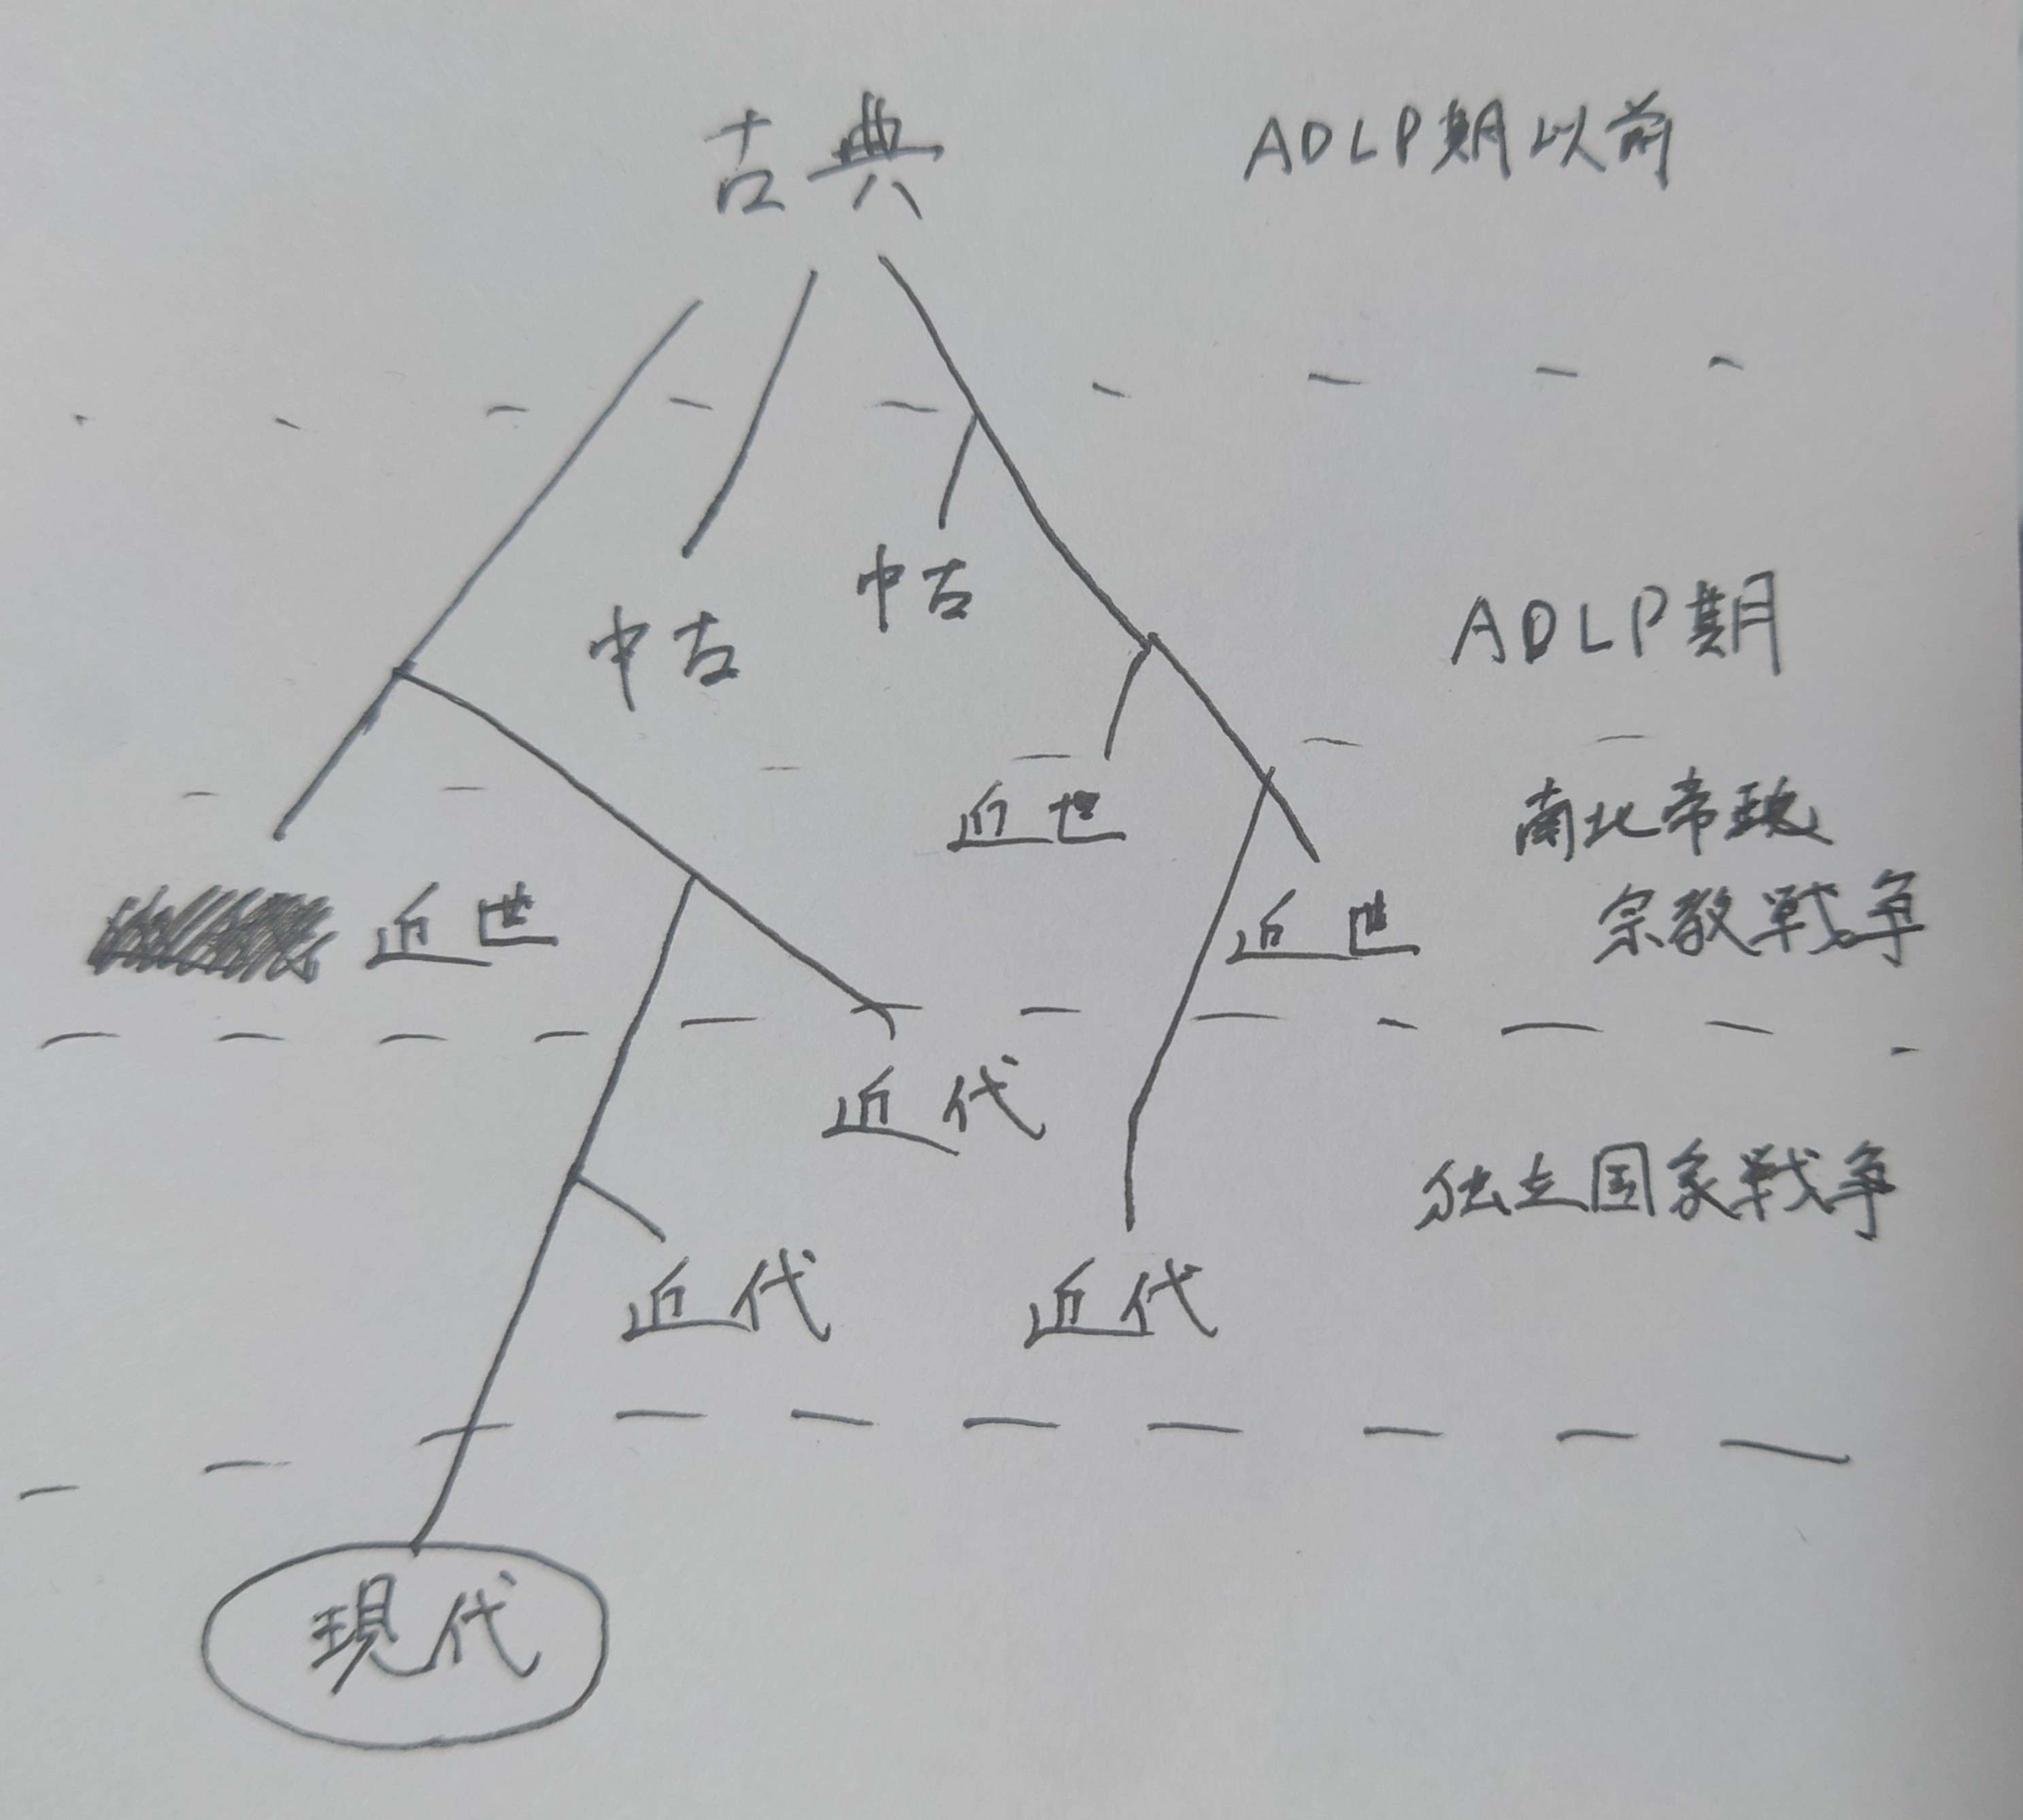 古典
ADLP期以前
中古
中古
ADLP期
近世
南北帝政
近世
近世
宗教戦争
近代
独立国家戦争
近代
近代
現代